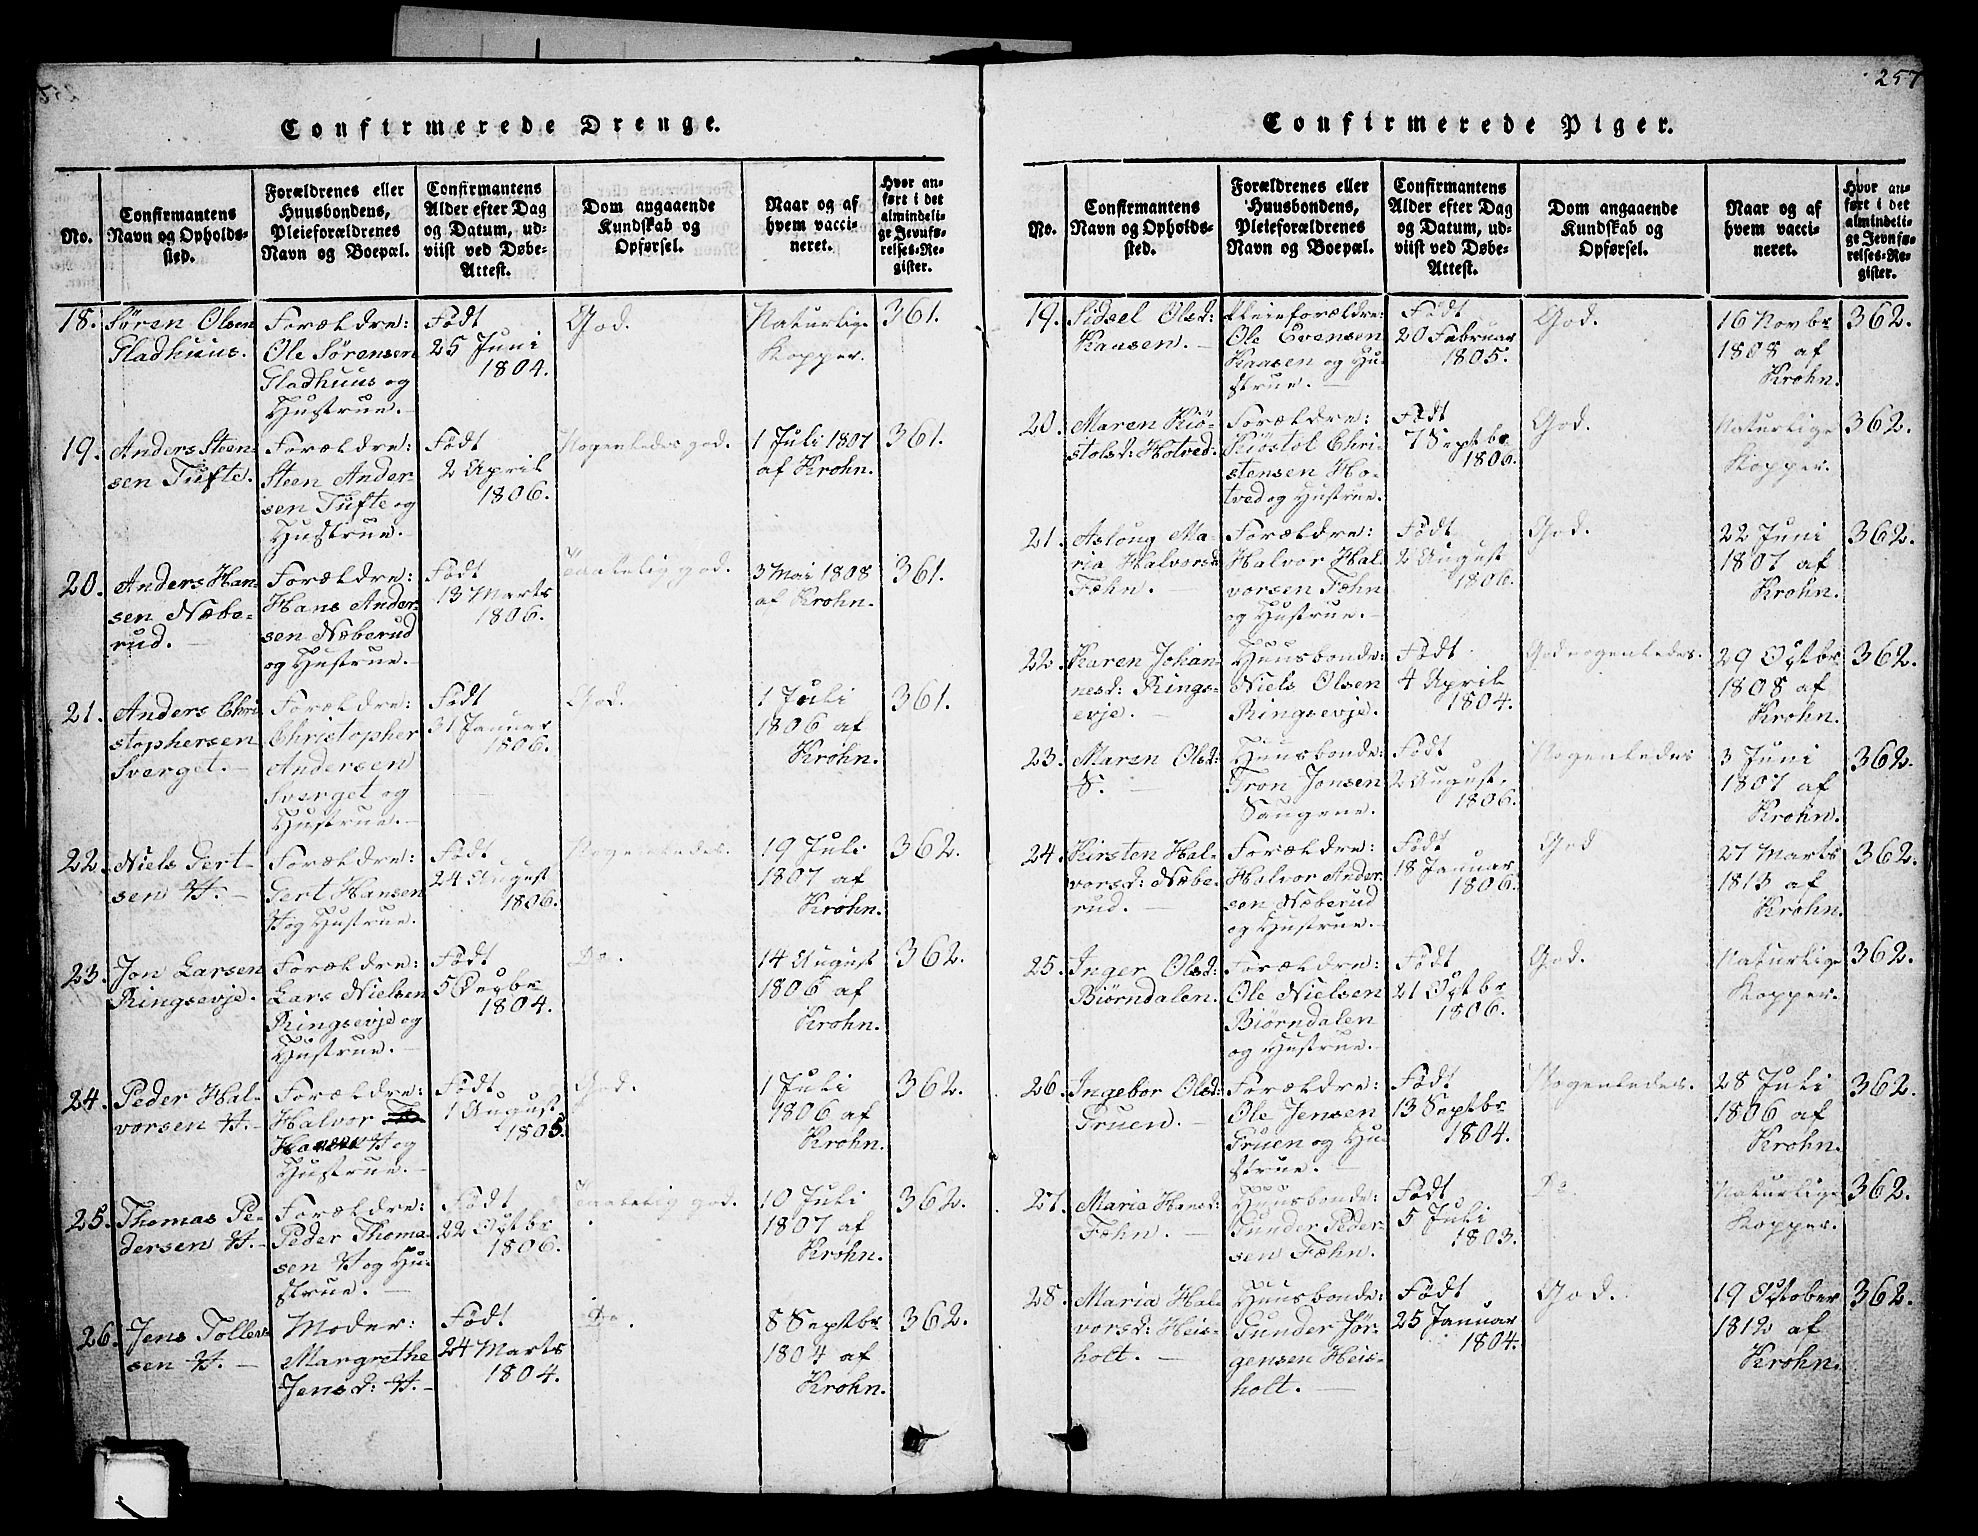 257
Confirmerede Drenge.
No.
Confirmantens
Navn og Opholds-
sted.
Forældrenes eller
Huusbondens,
Pleieforældrenes
Navn og Boepæl.
Confirmantens
Alder efter Dag
og Datum, ud-
viist ved Døbe-
Attest.
Dom angaaende
Kundskab og
Opførsel.
Naar og af
hvem vacci-
neret.
Hvor an-
ført i det
almindeli-
ge Jevnfø-
relses-Re-
gister.
18.
Søren Olsen
Gladhuus.
Forældre:
Ole Sørensen
Gladhuus og
Hustrue.
Født
25 Juni
1804.
God.
Naturlige
Kopper.
361.
19.
Anders Steen-
sen Tufte.
Forældre:
Steen Ander-
sen Tufte og
Hustrue.
Født
2 April
1806.
Nogenledes god.
1 Juli 1807
af Krohn.
361.
20.
Anders Han-
sen Næbe-
rud.
Forældre:
Hans Ander-
sen Næberud
og Hustrue.
Født
13 Marts
1806.
Taalelig god.
3 Mai 1808
af Krohn.
361.
21.
Anders Chri-
stophersen
Sverget.
Forældre:
Christopher
Andersen
Sverget og
Hustrue.
Født
31 Januar
1806.
God.
1 Juli
1806 af
Krohn.
361.
22.
Niels Gert-
sen H.
Forældre:
Gert Hansen
H og Hustrue.
Født
24 August
1806.
Nogenledes.
19 Juli
1807 af
Krohn.
362.
23.
Jon Larsen
Ringsevje.
Forældre:
Lars Nielsen
Ringsevje og
Hustrue.
Født
5
1804.
Do.
14 August
1806 af
Krohn.
362.
24.
Peder Hal-
vorsen H.
Forældre:
Halvor
H og
Hustrue.
Født
1 August
1805.
God.
1 Juli
1806 af
Krohn.
362.
25.
Thomas Pe-
dersen H.
Forældre:
Peder Thoma-
sen H og Hu-
strue.
Født
22 Octbr
1806.
Taalelig god.
10 Juli
1807 af
Krohn.
362.
26.
Jens Tollev-
sen H.
Moder:
Margrethe
Jensd: H.
Født
24 Marts
1804.
Do.
8 Septbr
1804 af
Krohn.
362.
Confirmerede Piger.
No.
Confirmantens
Navn og Opholds-
sted.
Forældrenes eller
Huusbondens,
Pleieforældrenes
Navn og Boepæl.
Confirmantens
Alder efter Dag
og Datum, ud-
viist ved Døbe-
Attest.
Dom angaaende
Kundskab og
Opførsel.
Naar og af
hvem vacci-
neret.
Hvor an-
ført i det
almindeli-
ge Jevnfø-
relses-Re-
gister.
19.
Sidsel Olsd:
Kaasen.
Pleieforældre:
Ole Evensen
Kaasen og Hu-
strue.
Født
20 Februar
1805.
God.
16 Novbr
1808 af
Krohn.
362.
20.
Maren Kiö-
stolsd: Hotved.
Forældre:
Kiöstol Chri-
stensen Ho-
tved og Hustrue.
Født
7 Septbr
1806.
God.
Naturlige
Kopper.
362.
21.
Asloug Ma-
ria Halvorsd
Fæhn.
Forældre:
Halvor Hal-
vorsen Fæhn
og Hustrue.
Født
2 August
1806.
God.
22 Juni
1807 af
Krohn.
362.
22.
Karen Johan-
nesd: Rings-
evje.
Huusbonde:
Niels Olsen
Ringsevje.
Født
4 April
1804.
God nogenledes.
29 Octbr
1808 af
Krohn.
362.
23.
Maren Olsd:
S.
Huusbonde:
Tron Jonsen
Saugene.
Født
2 August
1806.
Nogenledes
3 Juni
1807 af
Krohn.
362.
24.
Kirsten Hal-
vorsd: Næbe-
rud.
Forældre:
Halvor Ander-
sen Næberud
og Hustrue.
Født
18 Januar
1806.
God
27 Marts
1813 af
Krohn.
362.
25.
Inger Olsd:
Biörndalen.
Forældre:
Ole Nielsen
Biörndalen
og Hustrue.
Født
21 Octbr
1806.
God.
Naturlige
Kopper.
362.
26.
Ingebor Olsd:
Gruen.
Forældre:
Ole Jensen
Gruen og Hu-
strue.
Født
13 Septbr
1804.
Nogenledes.
28 Juli
1806 af
Krohn.
362.
27.
Maria Hansd:
Fæhn.
Huusbonde:
Gunder Peder-
sen Fæhn.
Født
5 Juli
1803.
Do.
Naturlige
Kopper.
362.
28.
Maria Hal-
vorsd: Heis-
holt.
Huusbonde:
Gunder Jør-
gensen Heis-
holt.
Født
25 Januar
1804.
God.
19 October
1812 af
Krohn.
362.